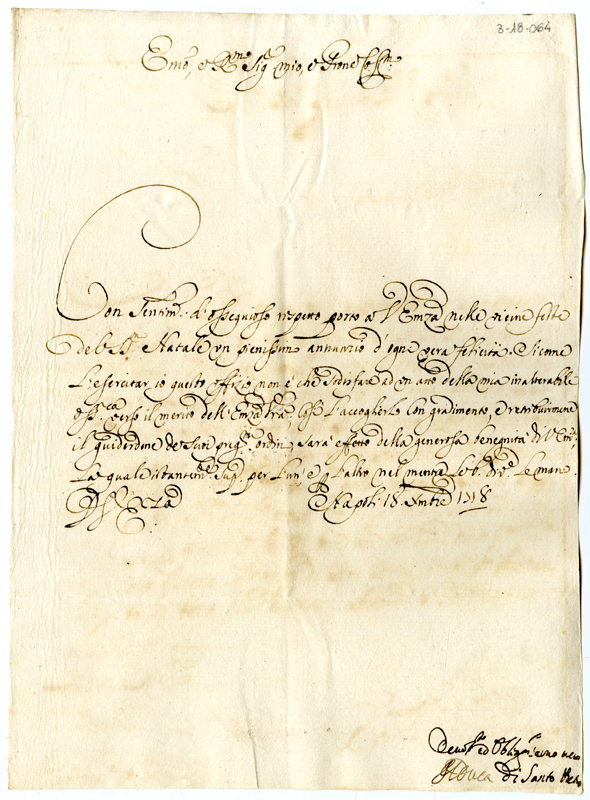 3-18-064
Emo, e Rmo Sig.r mio, e Prone
Con Sentim.ti d'ossequioso rispetto porto a V. Emza nelle vicine feste
del S.mo Natale un pienissimo annunzio d'ogni vera felicità. Siccome
l'esercitar io questo offizio non è che sodisfare ad un atto della mia inalterabile
verso il merito dell'Emza Vra. Così l'accoglierlo con gradimento, e retribuirmene
il guiderdone de' Suoi preg.mi ordini, sarà effetto della generosa benegnità di V. Em.
La quale istantem.te sup. per l'un e per l'altro nel mentre le b. le mani.
Di V. Emza Napoli 18. Xmbre 1718
Devot.mo ed Obligatissimo
Il Duca di Santo